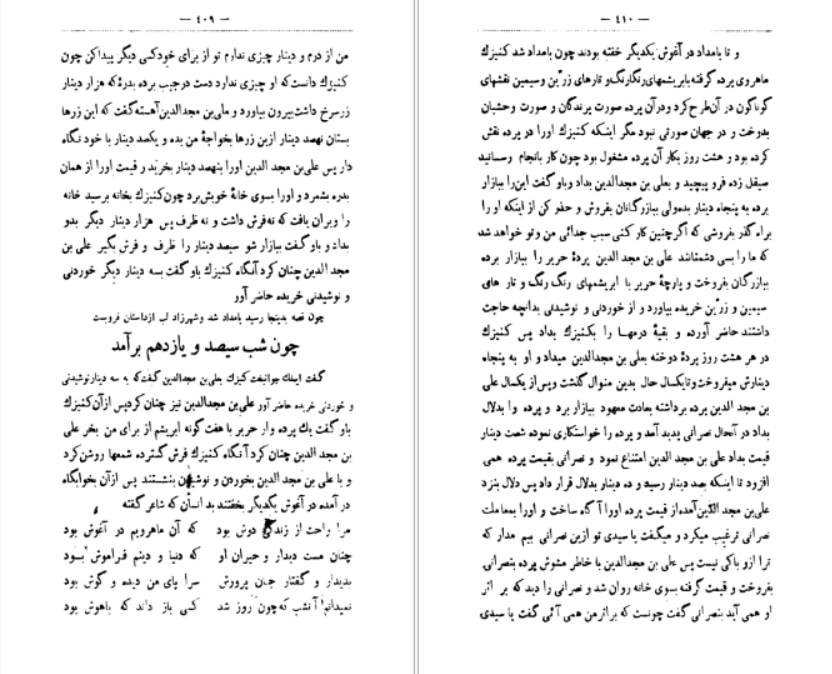 — ٤٠٩ —
من از درم و دینار چیزی ندارم تو از برای خود کسی دیگر پیدا کن چون
کنیزك دانست که او چیزی ندارد دست در جیب برده بدرهٔ که هزار دینار
زر سرخ داشت بیرون بیاورد و بعلی بن مجدالدین آهسته گفت که این زرها
بستان نهصد دینار ازین زرها بخواجهٔ من بده و یکصد دینار با خود نگاه
دار پس علی بن مجد الدین اورا بنهصد دینار بخرید و قیمت اورا از همان
بدره بشمرد و اورا بسوی خانهٔ خویش برد چون کنیزك بخانه برسید خانه
را ویران یافت که نه فرش داشت و نه ظرف پس هزار دینار دیگر بدو
بداد و باو گفت ببازار شو سیصد دینار را ظرف و فرش بگیر علی بن
مجد الدین چنان کرد آنگاه کنیزك باو گفت بسه دینار دیگر خوردنی
و نوشیدنی خریده حاضر آور
چون قصه بدینجا رسید بامداد شد وشهرزاد لب از داستان فروبست
چون شب سیصد و یازدهم برآمد
گفت ایملك جوانبخت کنیزك بعلی بن مجدالدین گفت که به سه دینار نوشیدنی
و خوردنی خریده حاضر آور علی بن مجدالدین نیز چنان کرد پس از آن کنیزك
باو گفت یك پرده وار حریر با هفت گونه ابریشم از برای من بخر علی
بن مجد الدین چنان کرد آنگاه کنیزك فرش گسترده شمعها روشن کرد
و با علی بن مجد الدین بخوردن و نوشیدن بنشستند پس از آن بخوابگاه
در آمده در آغوش یکدیگر بخفتند بد انسان که شاعر گفته
مرا راحت از زندگی دوش بود که آن ماهرویم در آغوش بود
چنان مست دیدار و حیران او که دنیا و دینم فراموش بود
بدیدار و گفتار جان پرورش سرا پای من دیده و گوش بود
نمیدانم آنشب که چون روز شد کسی باز داند که باهوش بود
— ٤١٠ —
و تا بامداد در آغوش یکدیگر خفته بودند چون بامداد شد کنیزك
ماهروی پرده گرفته با بریشمهای رنگارنگ و تارهای زرین و سیمین نقشهای
گوناگون در آن طرح کرد و در آن پرده صورت پرندگان و صورت وحشیان
بدوخت و در جهان صورتی نبود مگر اینکه کنیزك اورا در پرده نقش
کرده بود و هشت روز بکار آن پرده مشغول بود چون کار بانجام رسانید
صیقل زده فرو پیچید و بعلی بن مجدالدین بداد و باو گفت این را ببازار
برده به پنجاه دینار ببازرگانان بفروش و حذر کن از اینکه او را
براه گذر بفروشی که اگر چنین کار کنی سبب جدائی من و تو خواهد شد
که ما را بسی دشمنانند علی بن مجد الدین پردهٔ حریر را ببازار برده
ببازرگان بفروخت و پارچهٔ حریر با ابریشمهای رنگ رنگ و تار های
سیمین و زرین خریده بیاورد و از خوردنی و نوشیدنی بدانچه حاجت
داشتند حاضر آورده و بقیهٔ درمها را بکنیزك بداد پس کنیزك
در هر هشت روز پردهٔ دوخته بعلی بن مجدالدین میداد و او به پنجاه
دینارش میفروخت و تا یکسال حال بدین منوال گذشت و پس از یکسال علی
بن مجد الدین پرده برداشته بعادت معهود ببازار برد و پرده را بدلال
بداد در آنحال نصرانی پدید آمد و پرده را خواستگاری نموده شصت دینار
قیمت بداد علی بن مجد الدین امتناع نمود و نصرانی بقیمت پرده همی
افزود تا اینکه بصد دینار رسید و ده دینار بدلال قرار داد پس دلال بنزد
علی بن مجد الدین آمده از قیمت پرده اورا آگاه ساخت و اورا بمعاملت
نصرانی ترغیب میکرد و میگفت یا سیدی تو ازین نصرانی بیم مدار که
ترا ازو باکی نیست پس علی بن مجدالدین با خاطر مشوش پرده بنصرانی
بفروخت و قیمت گرفته بسوی خانه روان شد و نصرانی را دید که بر اثر
او همی آید بنصرانی گفت چونست که بر اثر من همی آئی گفت یا سیدی